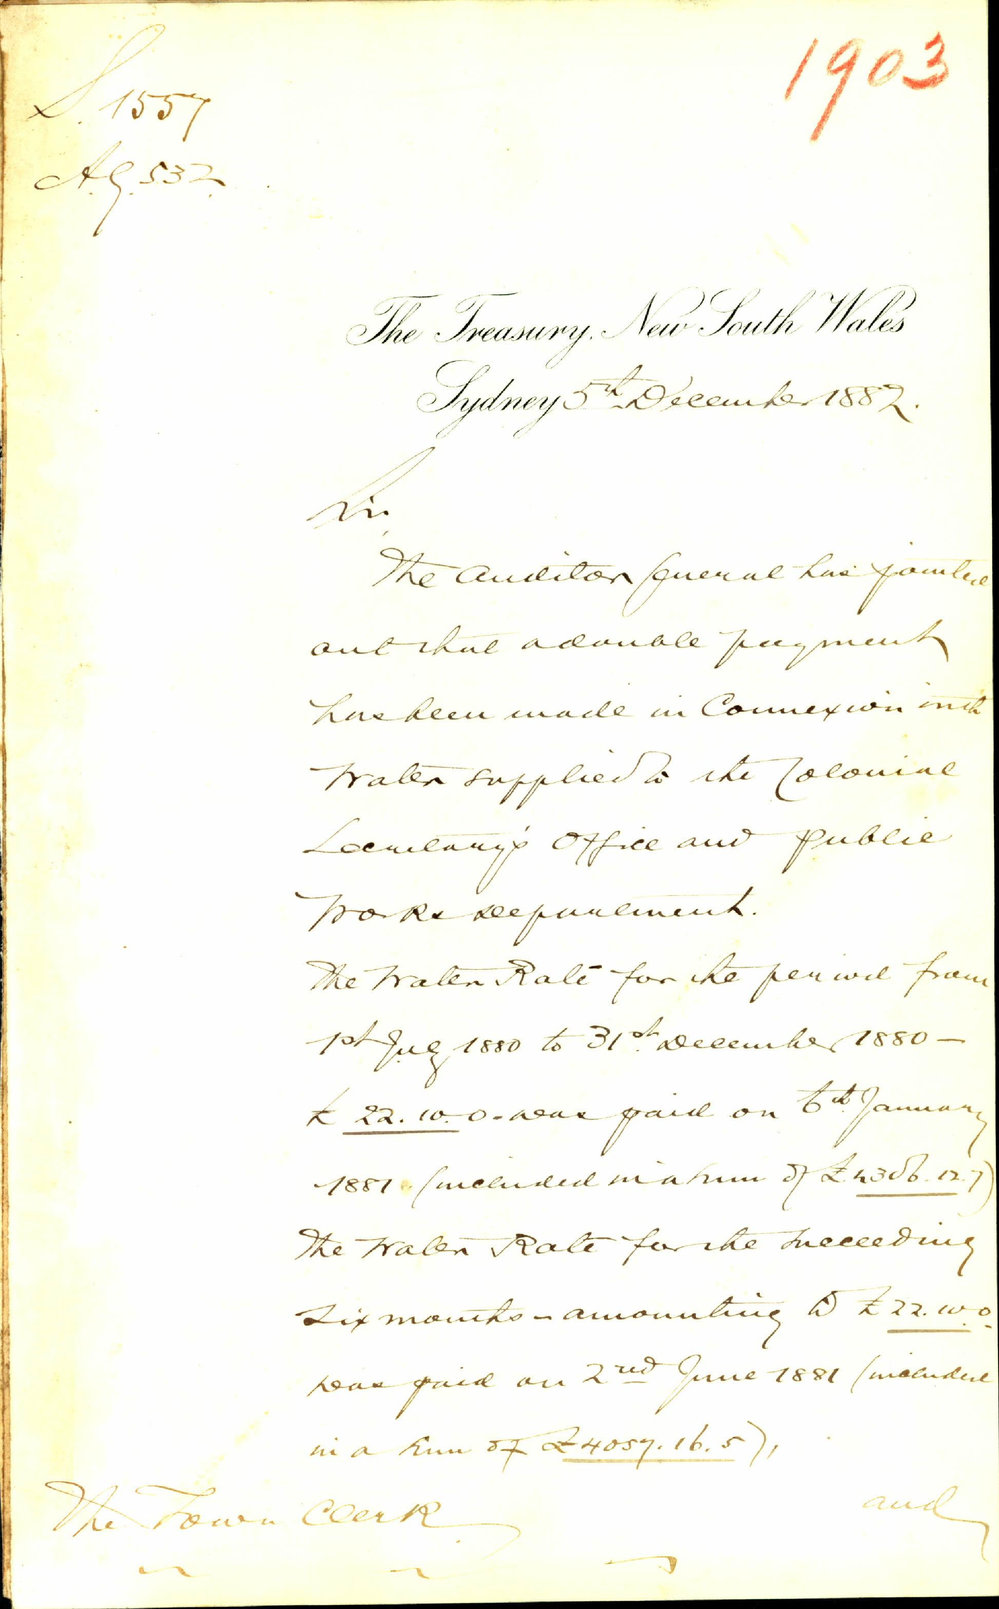 1903
S. 1557
A.G. 532.
The Treasury, New South Wales
Sydney 5th December 1882.
Sir,
The Auditor General has pointed
out that a double payment
has been made in Connexion with
Water supplied to the Colonial
Secretary's Office and Public
Works Department.
The Water Rate for the period from
1st July 1880 to 31st December 1880 —
£22.10.0 - was paid on 6th January
1881 (included in a sum of £4306.12.7)
The Water Rate for the succeeding
six months - amounting to £22.10.0
was paid on 2nd June 1881 (included
in a sum of £4057.16.5),
and
The Town Clerk